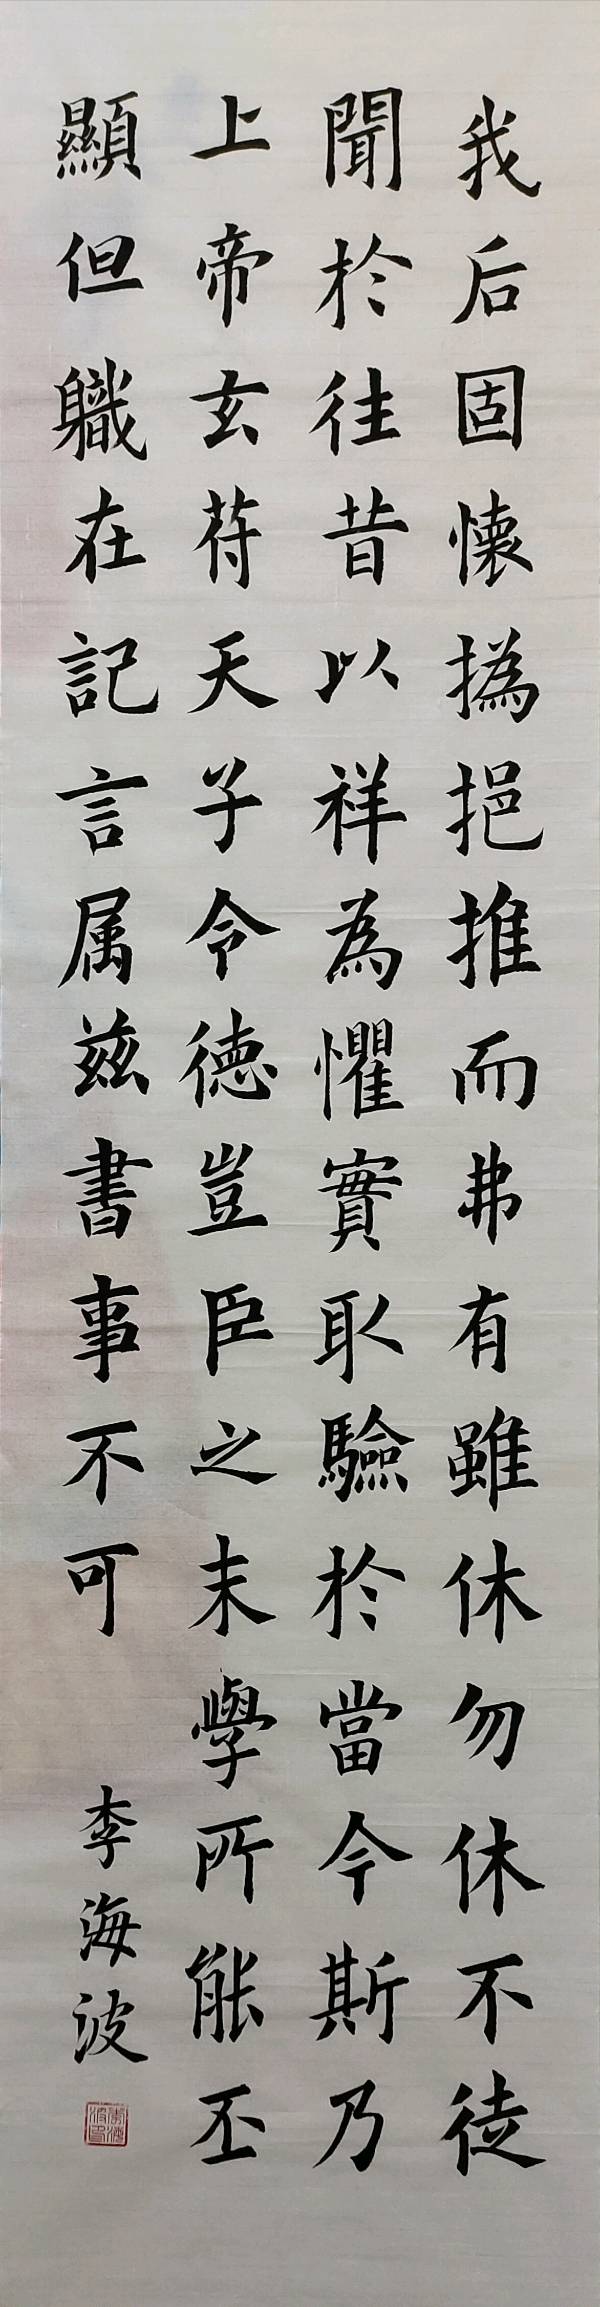 我后固懷撝挹推而弗有雖休勿休不徒
聞於往昔以祥為懼實取驗於當今斯乃
上帝玄苻天子令德豈臣之末學所能丕
顯但軄在記言属兹書事不可
李海波